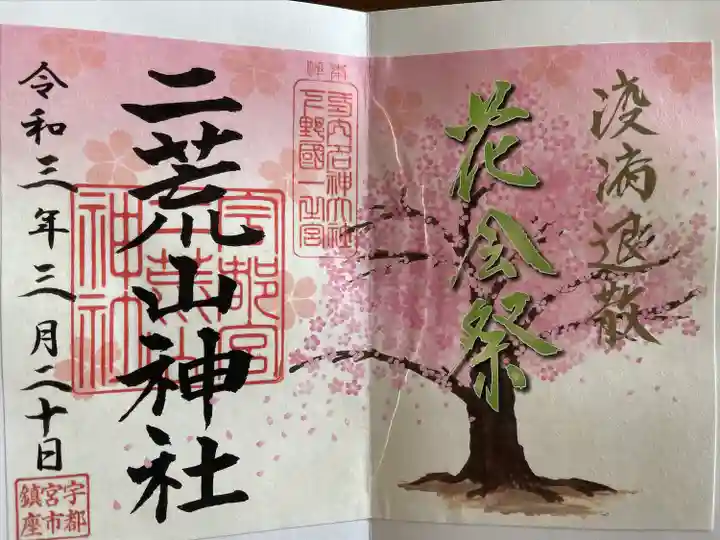 疫病退散
花会祭
奉拝
式内名神大社
下野國一之宮
二荒山神社
宇都宮
二荒山
神社
令和三年三月二十日
宇都
宮市
鎮座